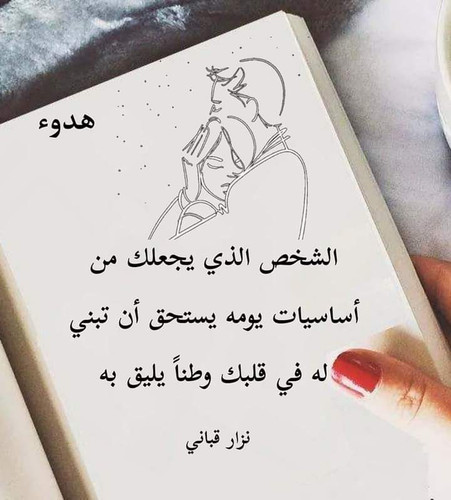 هدوء
الشخص الذي يجعلك من
أساسيات يومه يستحق أن تبني
له في قلبك وطناً يليق به
نزار قباني